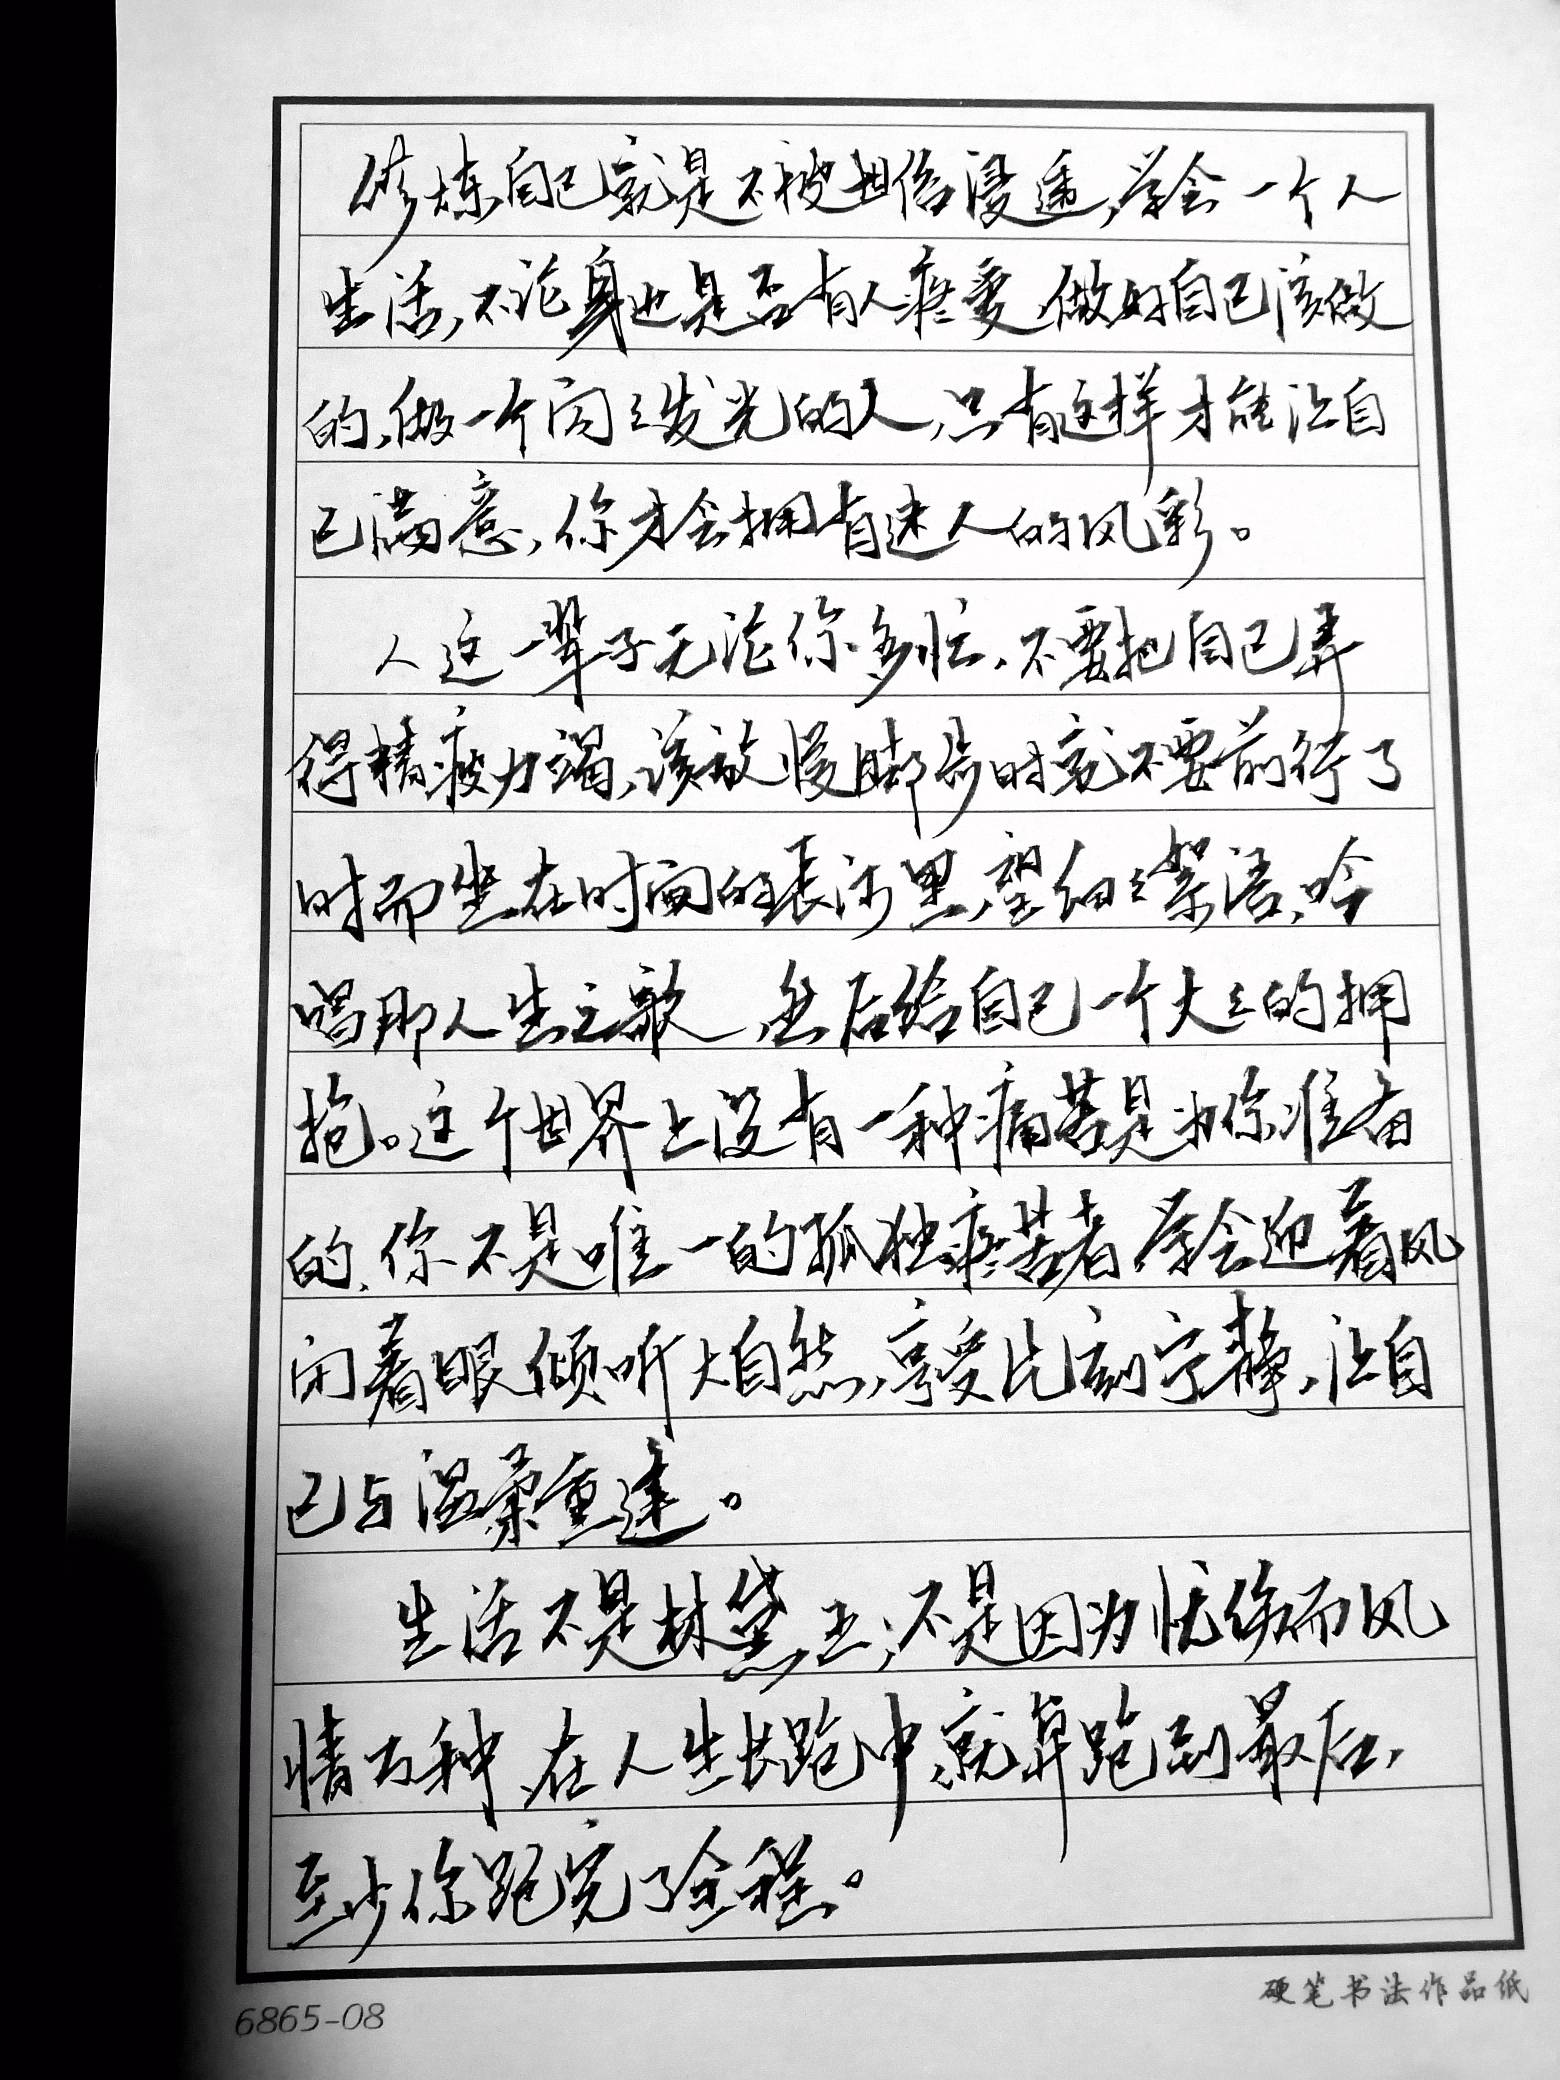 修炼自己就是不被世俗浸透,学会一个人
生活,不论身边是否有人疼爱,做好自己该做
的,做一个闪闪发光的人,只有这样才能让自
己满意,你才会拥有迷人的风彩。
人这一辈子无论你多忙,不要把自己弄
得精疲力竭,该放慢脚步时就不要前行了
时而坐在时间的长河里,轻细细絮语,吟
唱那人生之歌,然后给自己一个大大的拥
抱。这个世界上没有一种痛苦是为你准备
的,你不是唯一的孤独疼苦者,学会迎着风
闭着眼倾听大自然,享受片刻宁静,让自
己与温柔重逢。
生活不是林黛玉,不是因为忧伤而风
情万种,在人生长跑中,就算跑到最后,
至少你跑完了全程。
6865-08
硬笔书法作品纸